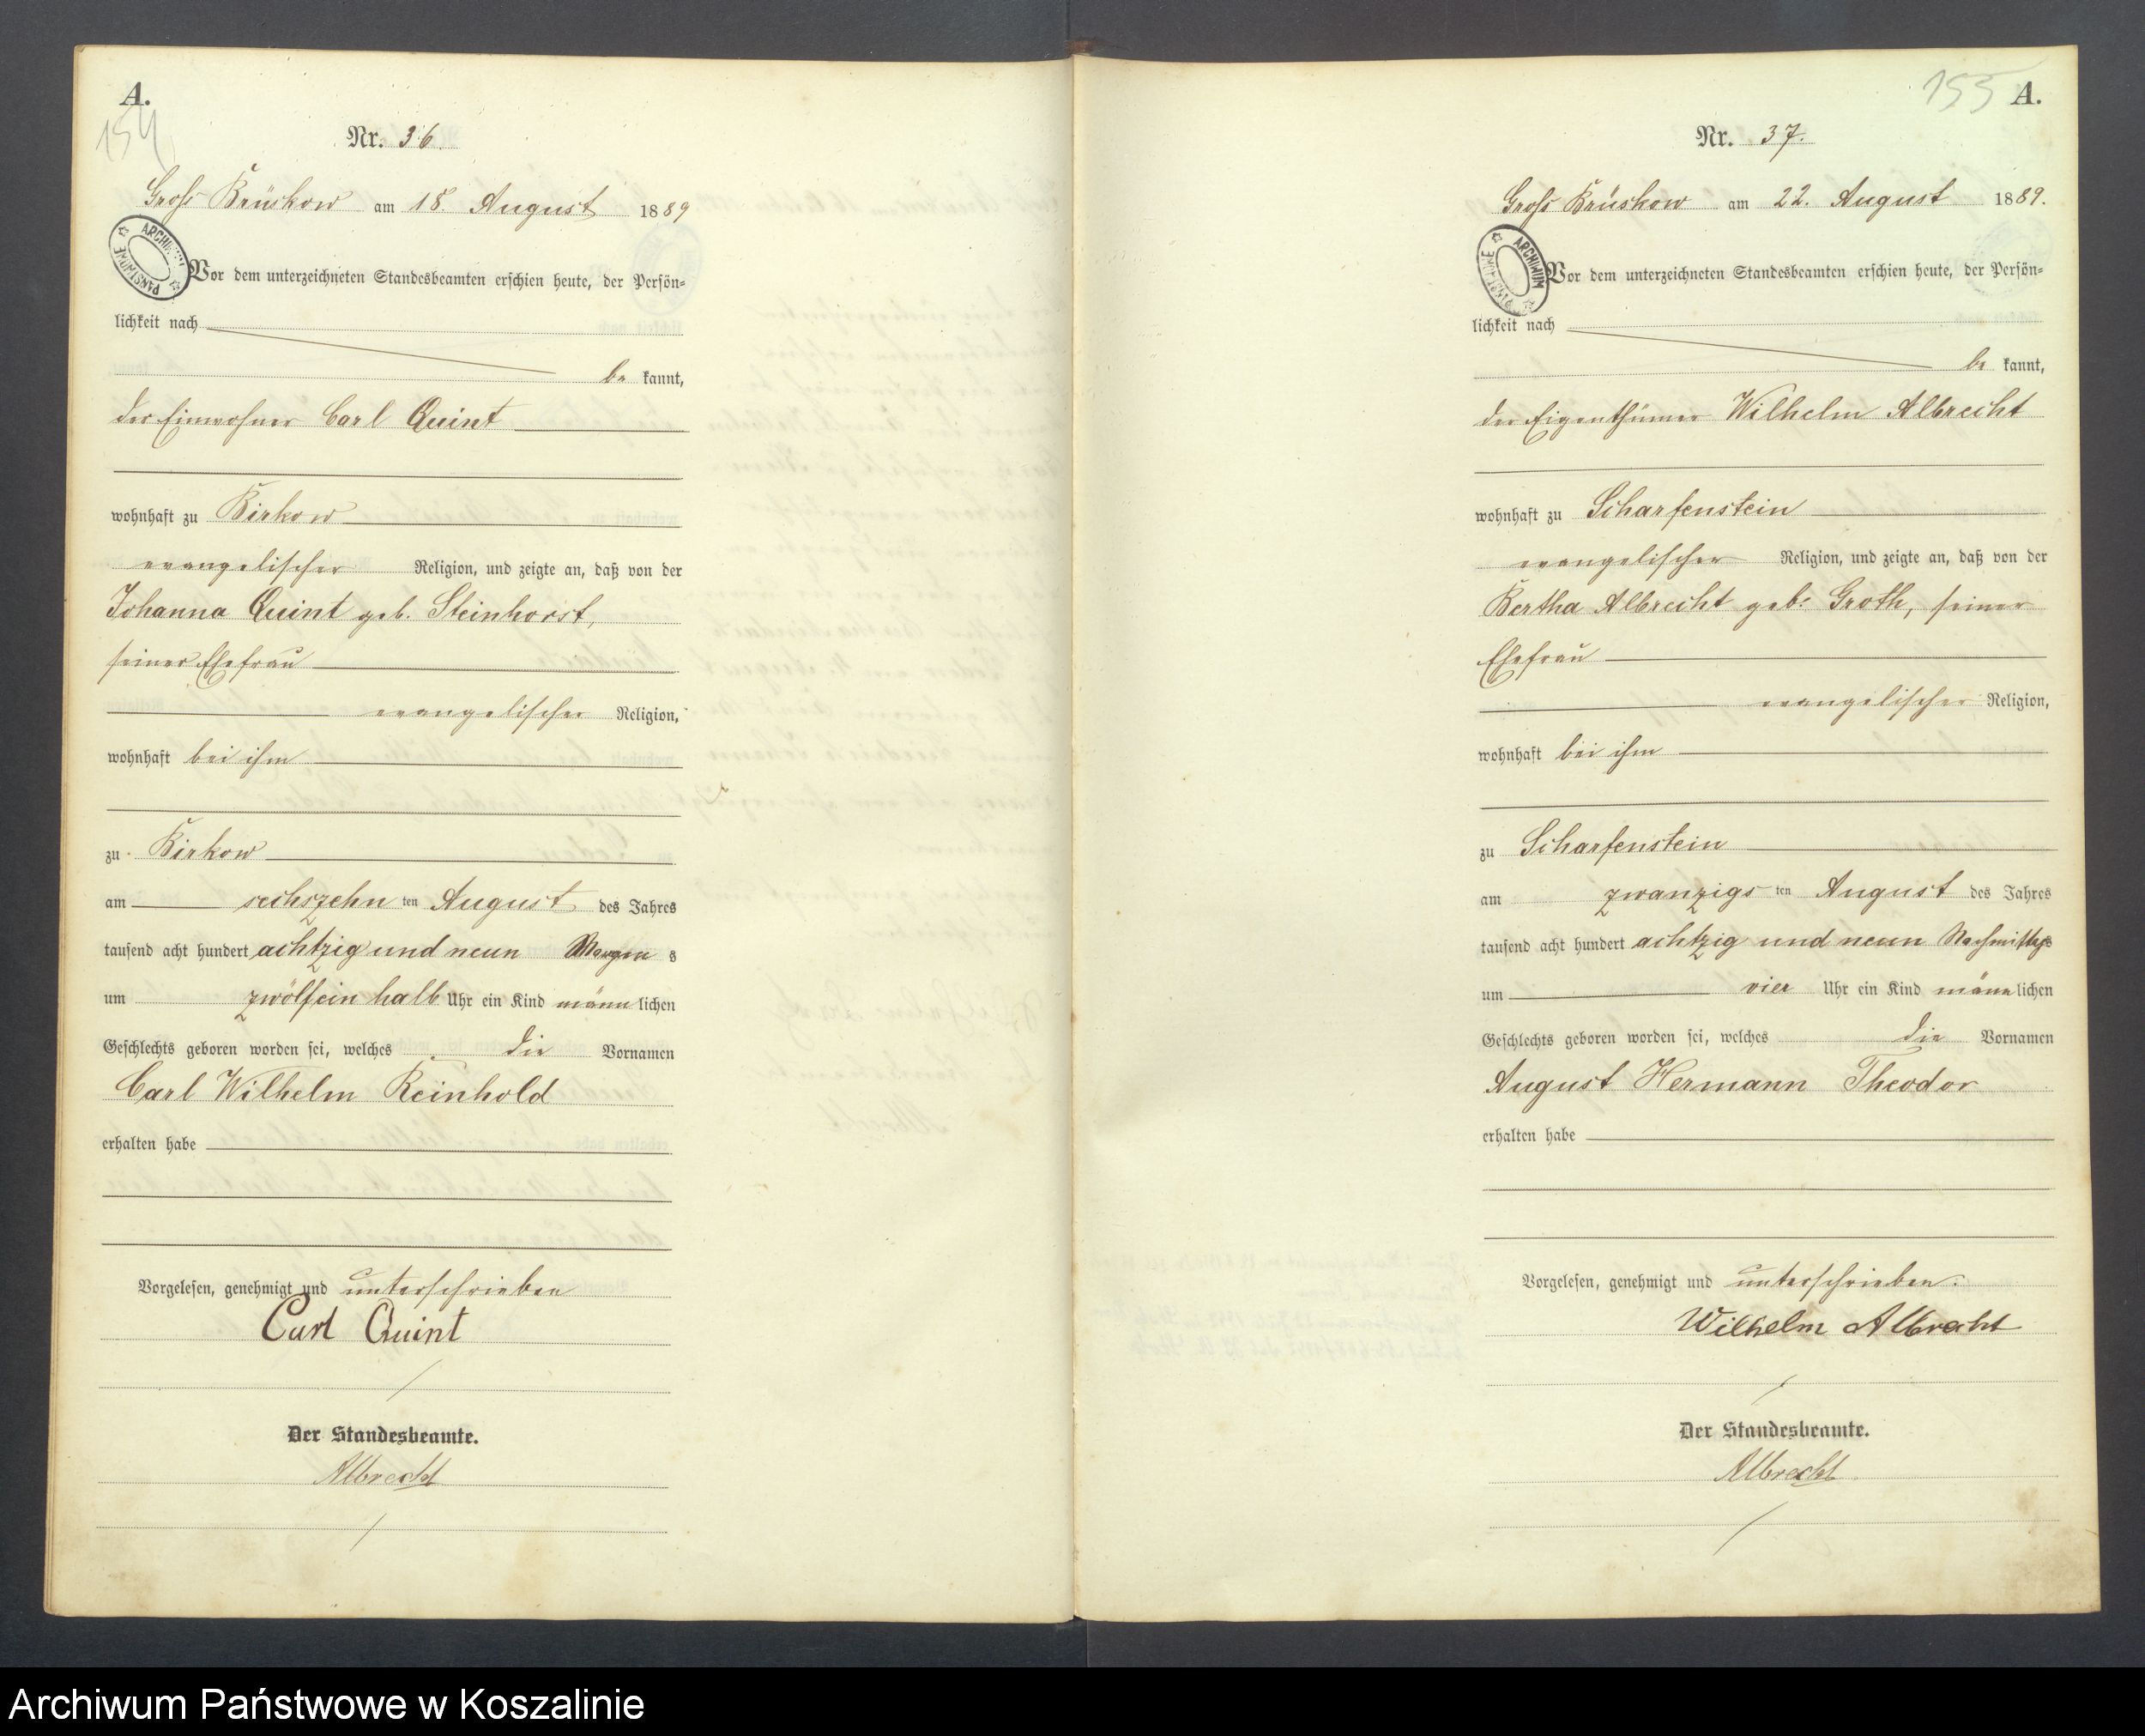 A.
154
Nr. 36.
Gross Brüskow am 18. August 1889
ARCHIWUM PAŃSTWOWE
Vor dem unterzeichneten Standesbeamten erschien heute, der Persön=
lichkeit nach
be kannt,
der Einwohner Carl Quint
wohnhaft zu Birkow
evangelischer Religion, und zeigte an, daß von der
Johanna Quint geb. Steinhorst,
seiner Ehefrau
evangelischer Religion,
wohnhaft bei ihm
zu Birkow
am sechszehn ten August des Jahres
tausend acht hundert achtzig und neun Morgen s
um zwölfein halb Uhr ein Kind männ lichen
Geschlechts geboren worden sei, welches die Vornamen
Carl Wilhelm Reinhold
erhalten habe
Vorgelesen, genehmigt und unterschrieben
Carl Quint
Der Standesbeamte.
Albrecht
155 A.
Nr. 37.
Gross Brüskow am 22. August 1889.
ARCHIWUM PAŃSTWOWE
Vor dem unterzeichneten Standesbeamten erschien heute, der Persön=
lichkeit nach
be kannt,
der Eigenthümer Wilhelm Albrecht
wohnhaft zu Scharfenstein
evangelischer Religion, und zeigte an, daß von der
Bertha Albrecht geb. Groth, seiner
Ehefrau
evangelischer Religion,
wohnhaft bei ihm
zu Scharfenstein
am zwanzigs ten August des Jahres
tausend acht hundert achtzig und neun Nachmittags
um vier Uhr ein Kind männ lichen
Geschlechts geboren worden sei, welches die Vornamen
August Hermann Theodor
erhalten habe
Vorgelesen, genehmigt und unterschrieben.
Wilhelm Albrecht
Der Standesbeamte.
Albrecht
Archiwum Państwowe w Koszalinie